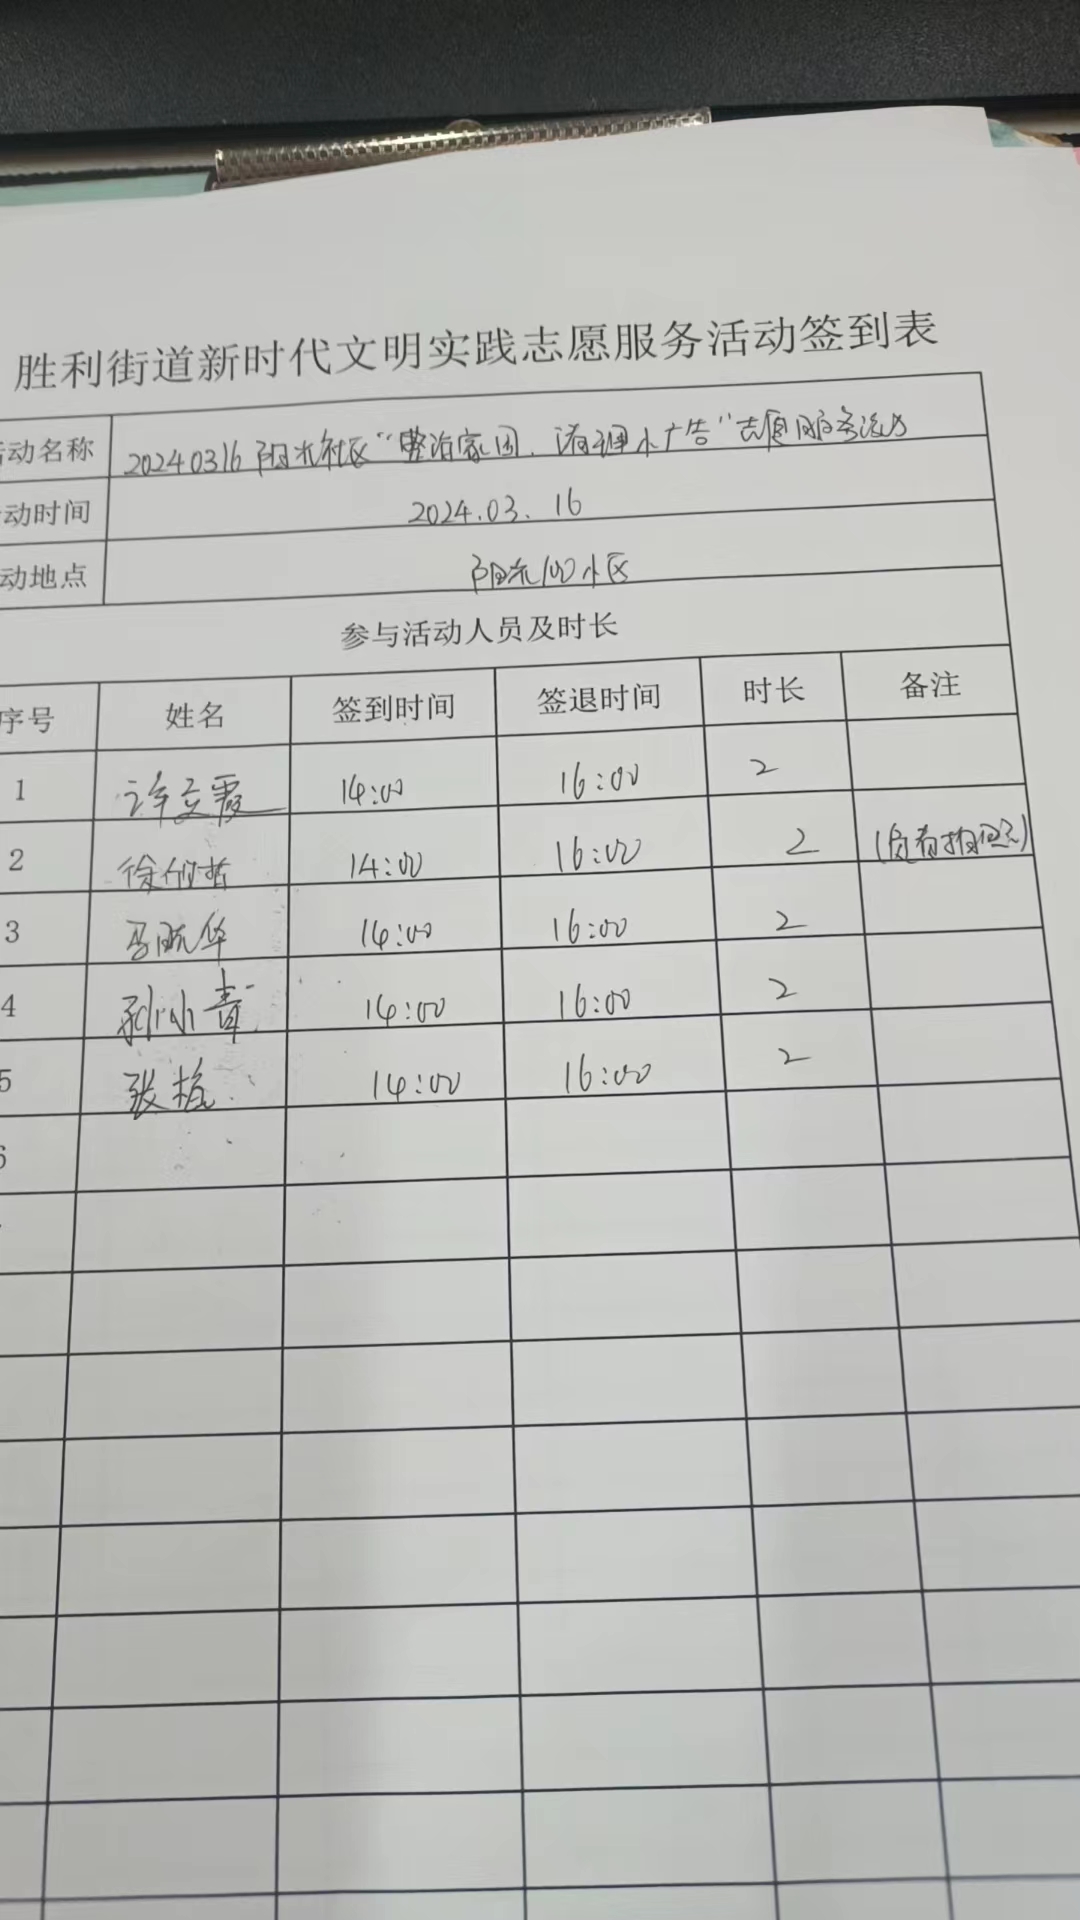 胜利街道新时代文明实践志愿服务活动签到表
活动名称 20240316阳光社区“整治家园、清理小广告”志愿服务活动
动时间 2024.03.16
动地点 阳光100小区
参与活动人员及时长
序号 姓名 签到时间 签退时间 时长 备注
1 许立霞 14:00 16:00 2
2 徐 14:00 16:00 2 (负责拍照)
3 马 华 14:00 16:00 2
4 孙小青 14:00 16:00 2
5 张梅 14:00 16:00 2
6